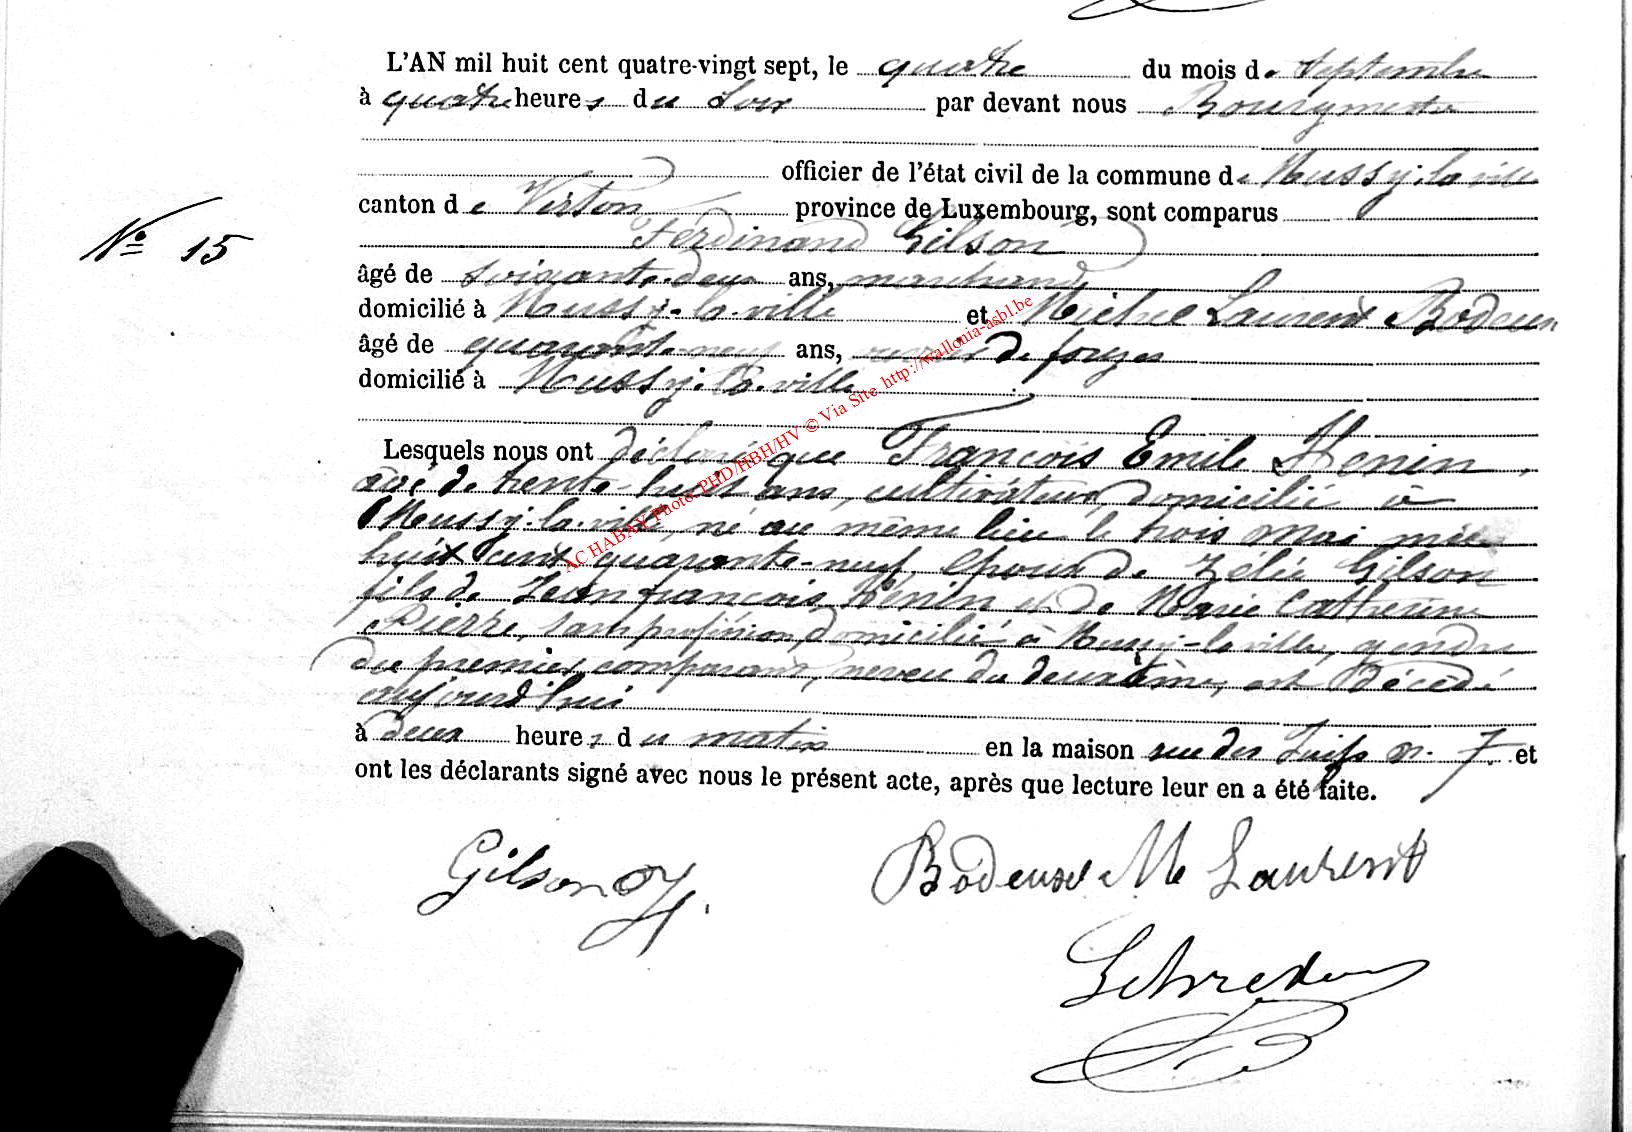 L'AN mil huit cent quatre-vingt sept, le quatre du mois de Septembre
à quatre heures du soir par devant nous Bourgmestre
officier de l'état civil de la commune de Mussy-la-ville
canton de Virton province de Luxembourg, sont comparus
Ferdinand Gilson
N° 15
âgé de soixante-deux ans, marchand
domicilié à Mussy-la-ville et Michel Laurent Bodeux
âgé de quarante-neuf ans, de forges
domicilié à Mussy-la-ville
Lesquels nous ont déclaré que François Emile Henin,
âgé de trente-huit ans, cultivateur, domicilié à
Mussy-la-ville, né au même lieu le trois mai mil
huit cent quarante-neuf, époux de Zélie Gilson
fils de Jean françois Hénin et de Marie Catherine
Pierre, sans profession, domicilié à Mussy-la-ville, gendre
du premier comparant, neveu du deuxième, est décédé
aujourd'hui
à deux heures du matin en la maison rue des n. 7. et
ont les déclarants signé avec nous le présent acte, après que lecture leur en a été faite.
Gilson F. Bodeux M Laurent
AC HABAY Photo: PHD/HBH/HV © Via Site http://wallonia-asbl.be